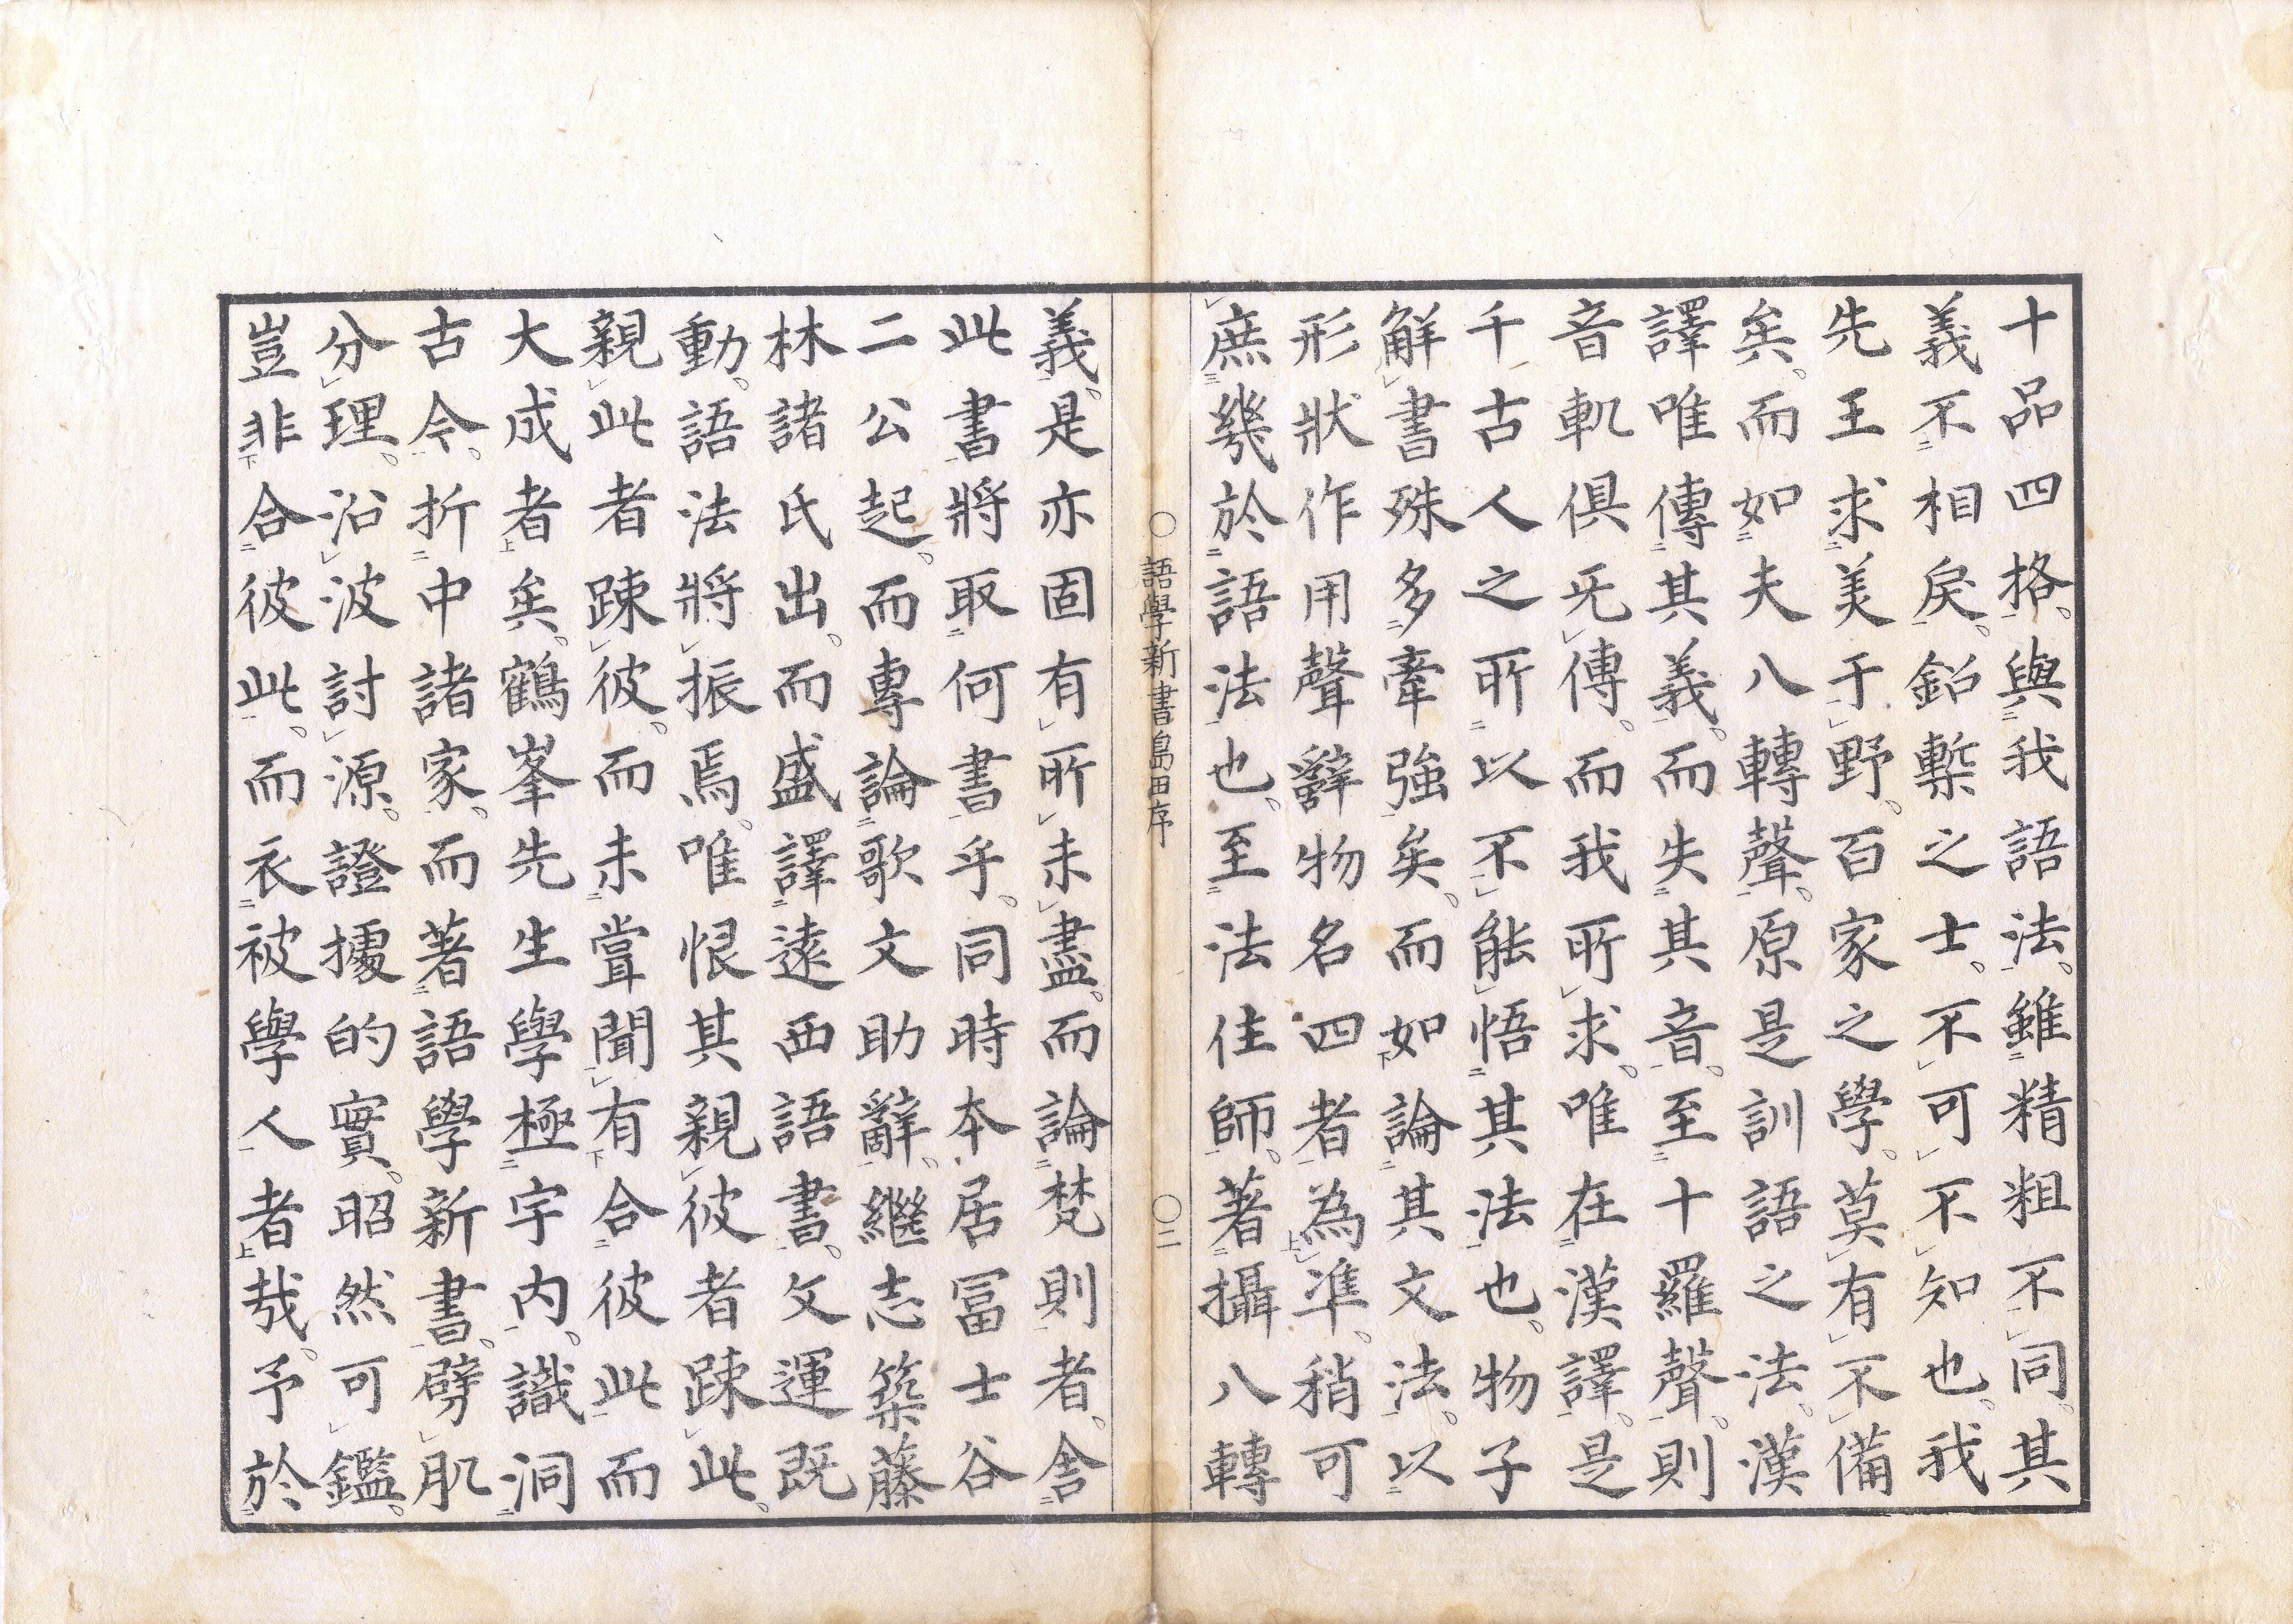 十品四格。與我語法。雖精粗不同。其
義不相戾。鉛槧之士。不可不知也。我
先王求美于野。百家之學。莫有不備
矣。而如夫八轉聲。原是訓語之法。漢
譯唯傳其義。而失其音。至十羅聲。則
音軌俱旡傳。而我所求。唯在漢譯。是
千古人之所以不能悟其法也。物子
解書殊多牽強矣。而如論其文法。以
形狀作用聲辭物名四者為準。稍可
庶幾於語法也。至法住師。著攝八轉
〇語學新書島田序 〇二
義。是亦固有所未盡。而論梵則者。舍
此書將取何書乎。同時本居冨士谷
二公起。而專論歌文助辭。繼志築藤
林諸氏出。而盛譯遠西語書。文運既
動。語法將振焉。唯恨其親彼者踈此。
親此者踈彼。而未嘗聞有合彼此而
大成者矣。鶴峯先生學極宇內。識洞
古今。折中諸家。而著語學新書。劈肌
分理。沿波討源。證據的實。昭然可鑑。
豈非合彼此。而衣被學人者哉。予於